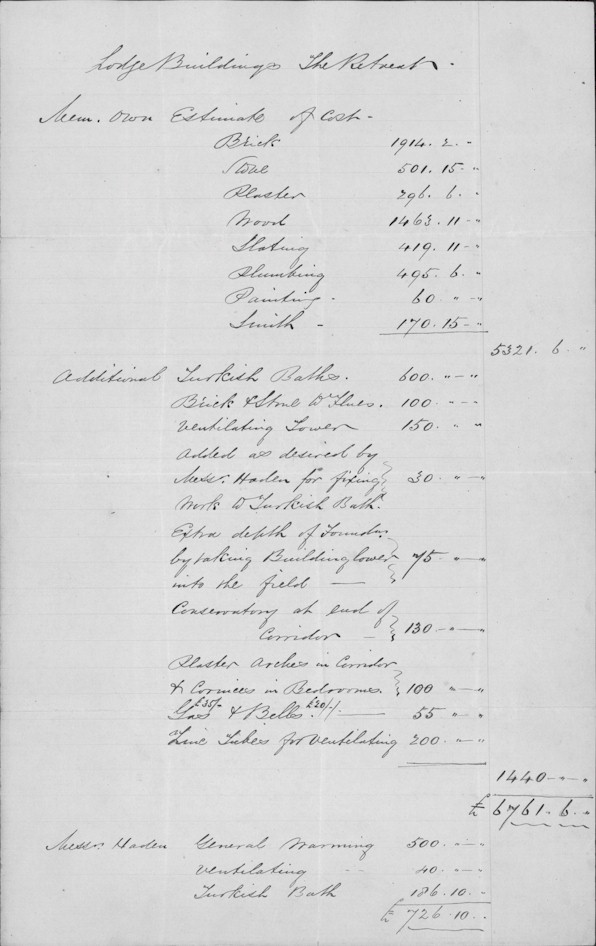 Lodge Buildings The Retreat.
Mem. Own Estimate of Cost -
Brick 1914. 2. "
Stone 501. 15 - "
Plaster 296. 6. "
Wood 1463. 11 - "
Slating 419. 11 - "
Plumbing 495. 6. "
Painting - 60 " - "
Smith - 170. 15 - "
5321. 6 "
Additional Turkish Baths. 600. " - "
Brick & Stone Do Flues. 100. " - "
Ventilating Tower 150. " "
Added as desired by
Messrs. Haden for fixing 30. " - "
Work Do Turkish Bath.
Extra depth of Foundns.
by taking Building lower 75 - " - "
into the field —
Conservatory at end of
Corridor - 130 - " - "
Plaster Arches in Corridor
& Cornices in Bedrooms 100 " - "
Gas £35/- & Bells £20/-/. — 55 " - "
Zinc Tubes for Ventilating 200. " - "
1440 - " - "
£ 6761. 6. "
Messrs. Haden General Warming 500. " - "
Ventilating 40. " - "
Turkish Bath 186. 10. "
£ 726. 10. "